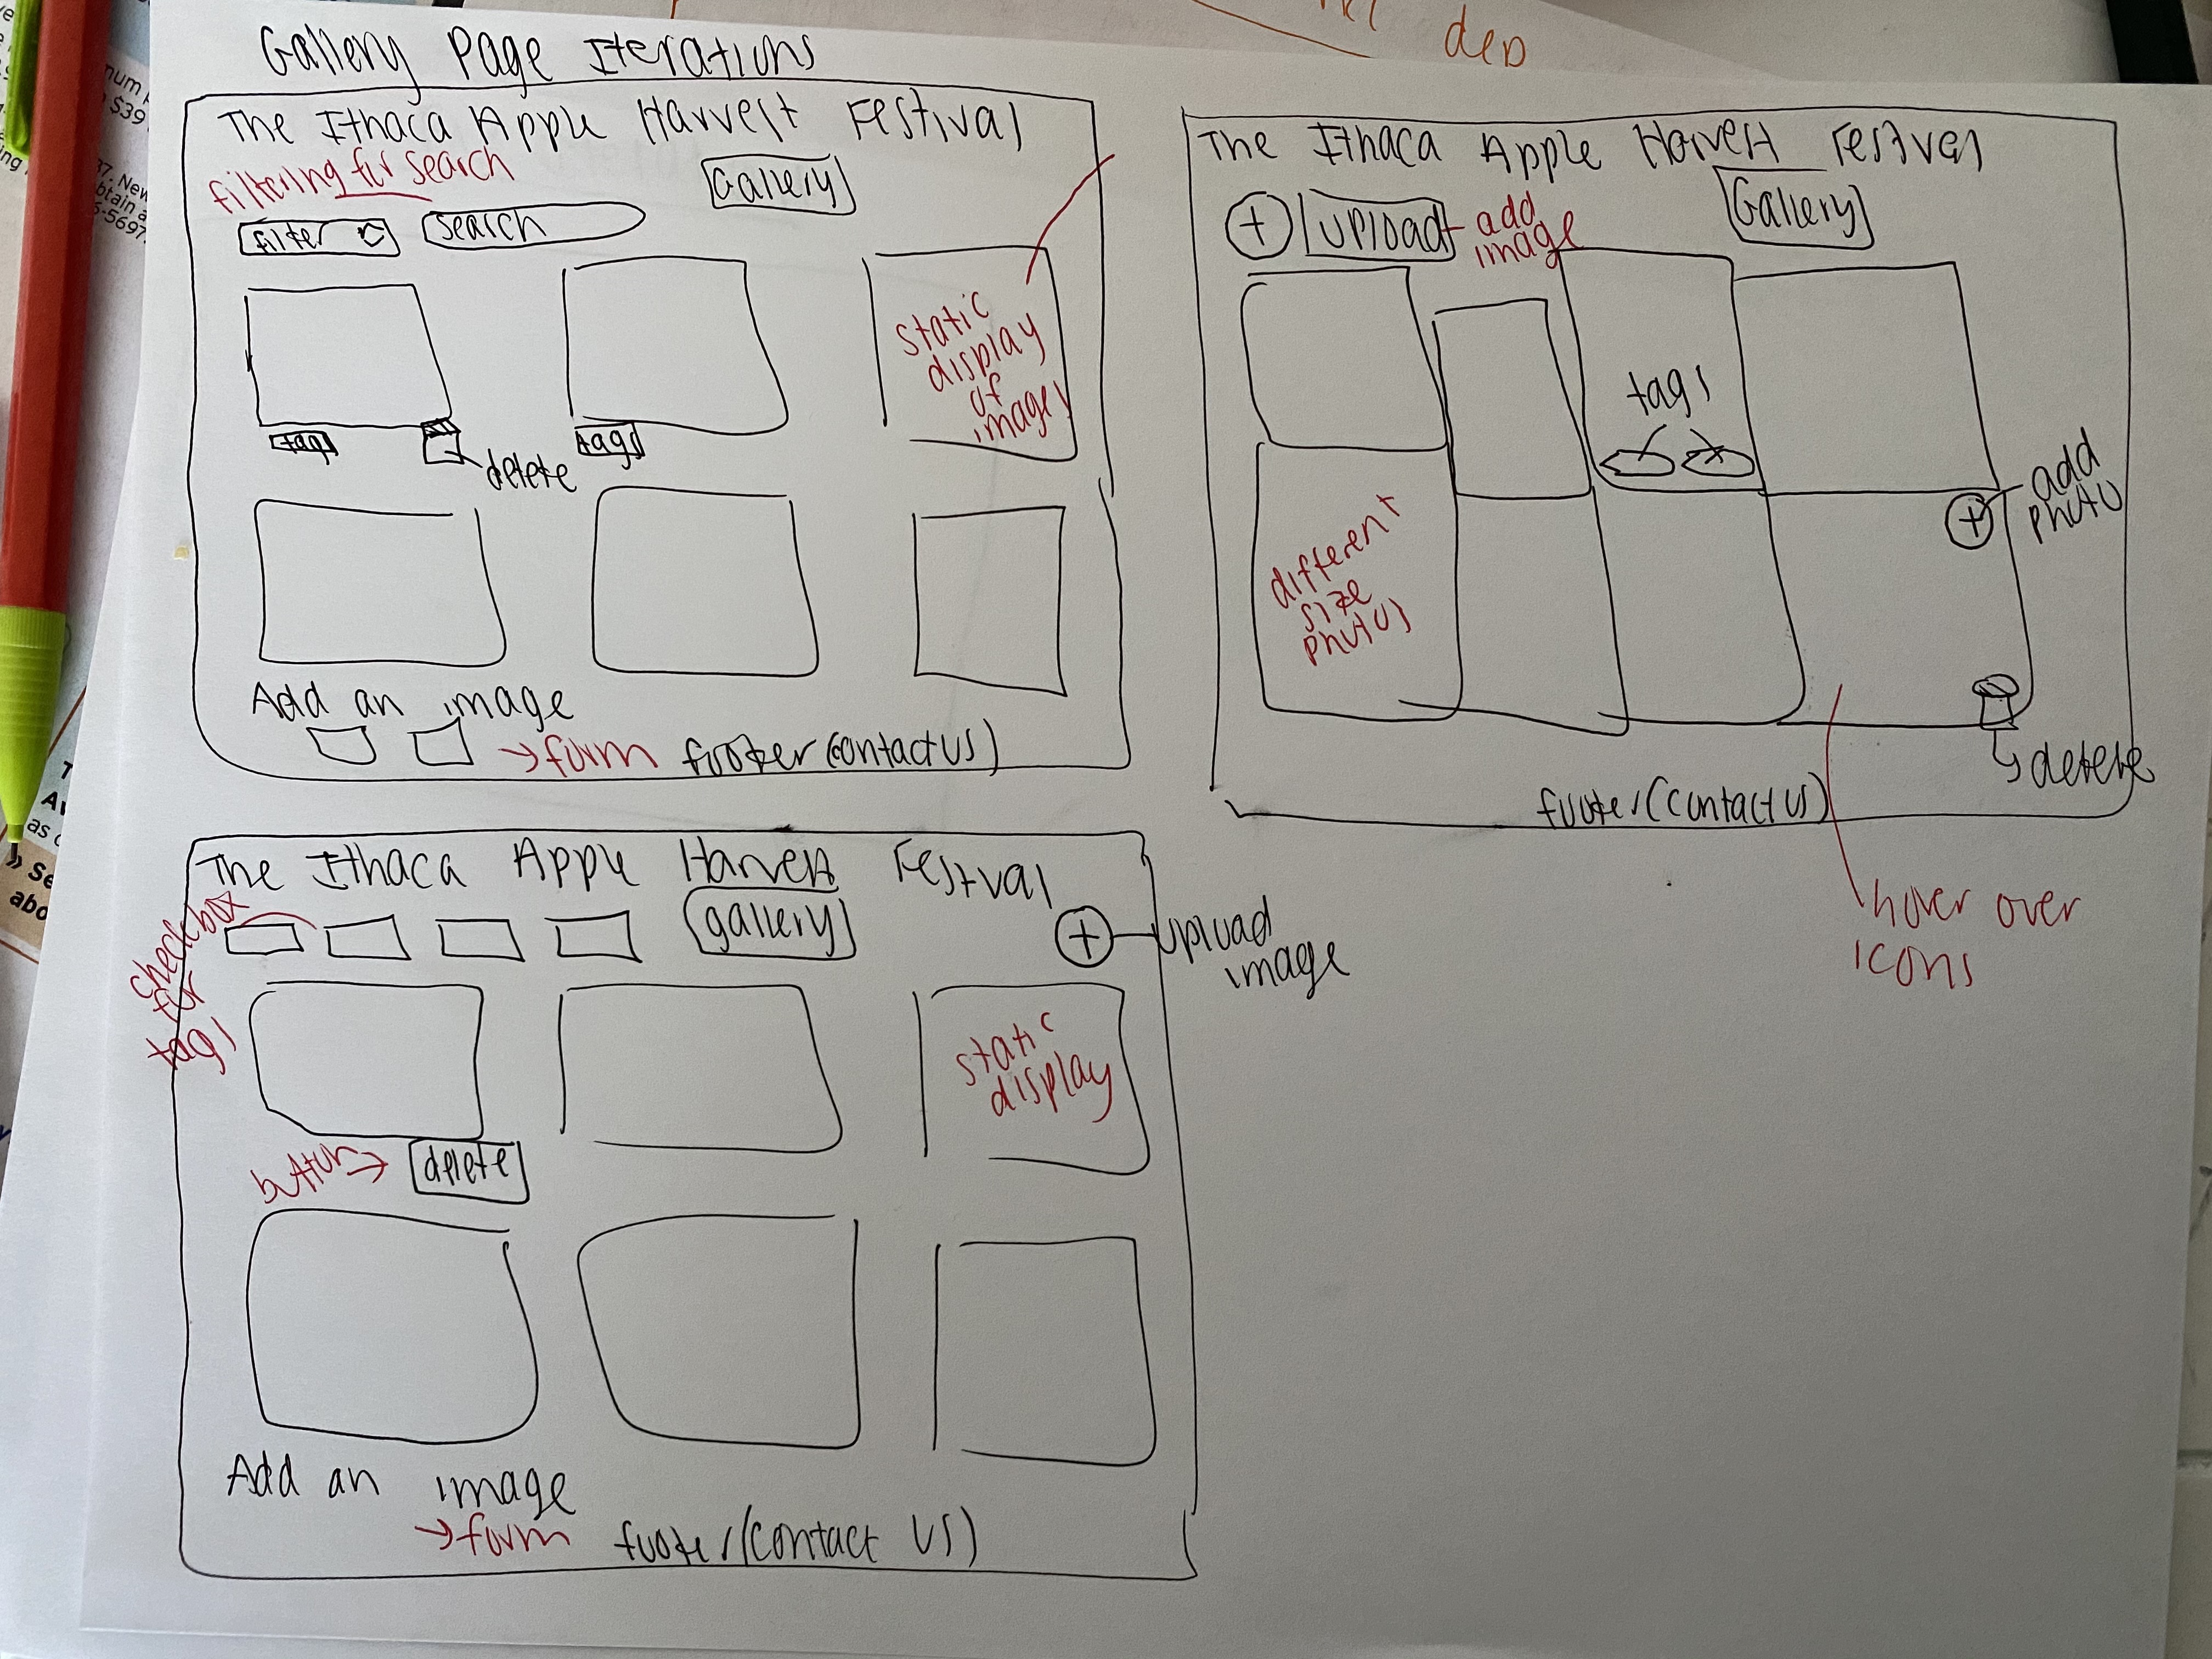 Gallery Page Iterations
The Ithaca Apple Harvest Festival
filtering for search
Gallery
filter
search
static
display
of
images
tags
delete
tags
Add an image
→form
footer (contact us)
The Ithaca Apple Harvest Festival
+
upload
add
image
Gallery
tags
add
photo
+
different
size
photos
delete
footer (contact us)
hover over
icons
The Ithaca Apple Harvest Festival
checkbox
for
tags
gallery
+
upload
image
static
display
button→
delete
Add an image
→form
footer (contact us)
dep
$39
37. New
5-5697
Se
abo